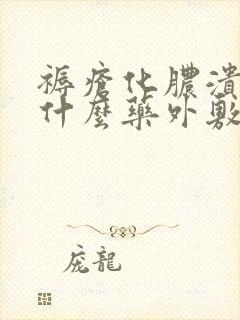 褥瘡化膿潰
什麼藥外敷
庞龍